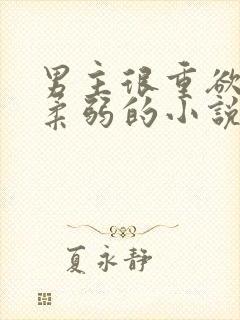 男主很重欲
柔弱的小說
夏永静